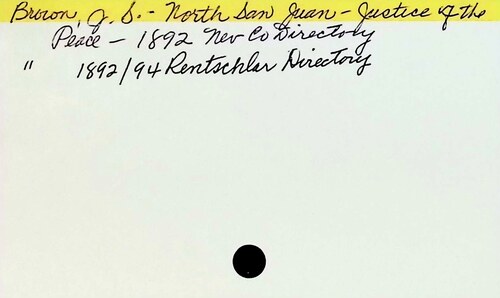 Brown, J. S. - North San Juan - Justice of the
Peace - 1892 Nev Co Directory
" 1892/94 Rentschlar Directory